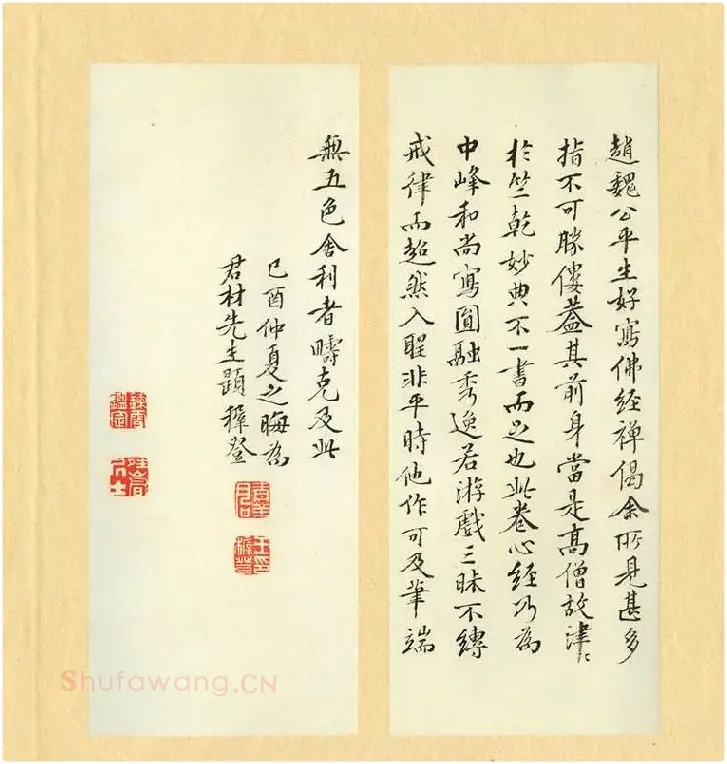 趙魏公平生好寫佛經禅偈余所見甚多
指不可勝僂蓋其前身當是高僧故津〻
於竺乾妙典不一書而足也此卷心經乃為
中峰和尚寫圓融秀逸若游戲三昧不縳
戒律而超然入聖非平時他作可及筆端
無五色舍利者疇克及此
己酉仲夏之晦為
君材先生題穉登
Shufawang.CN